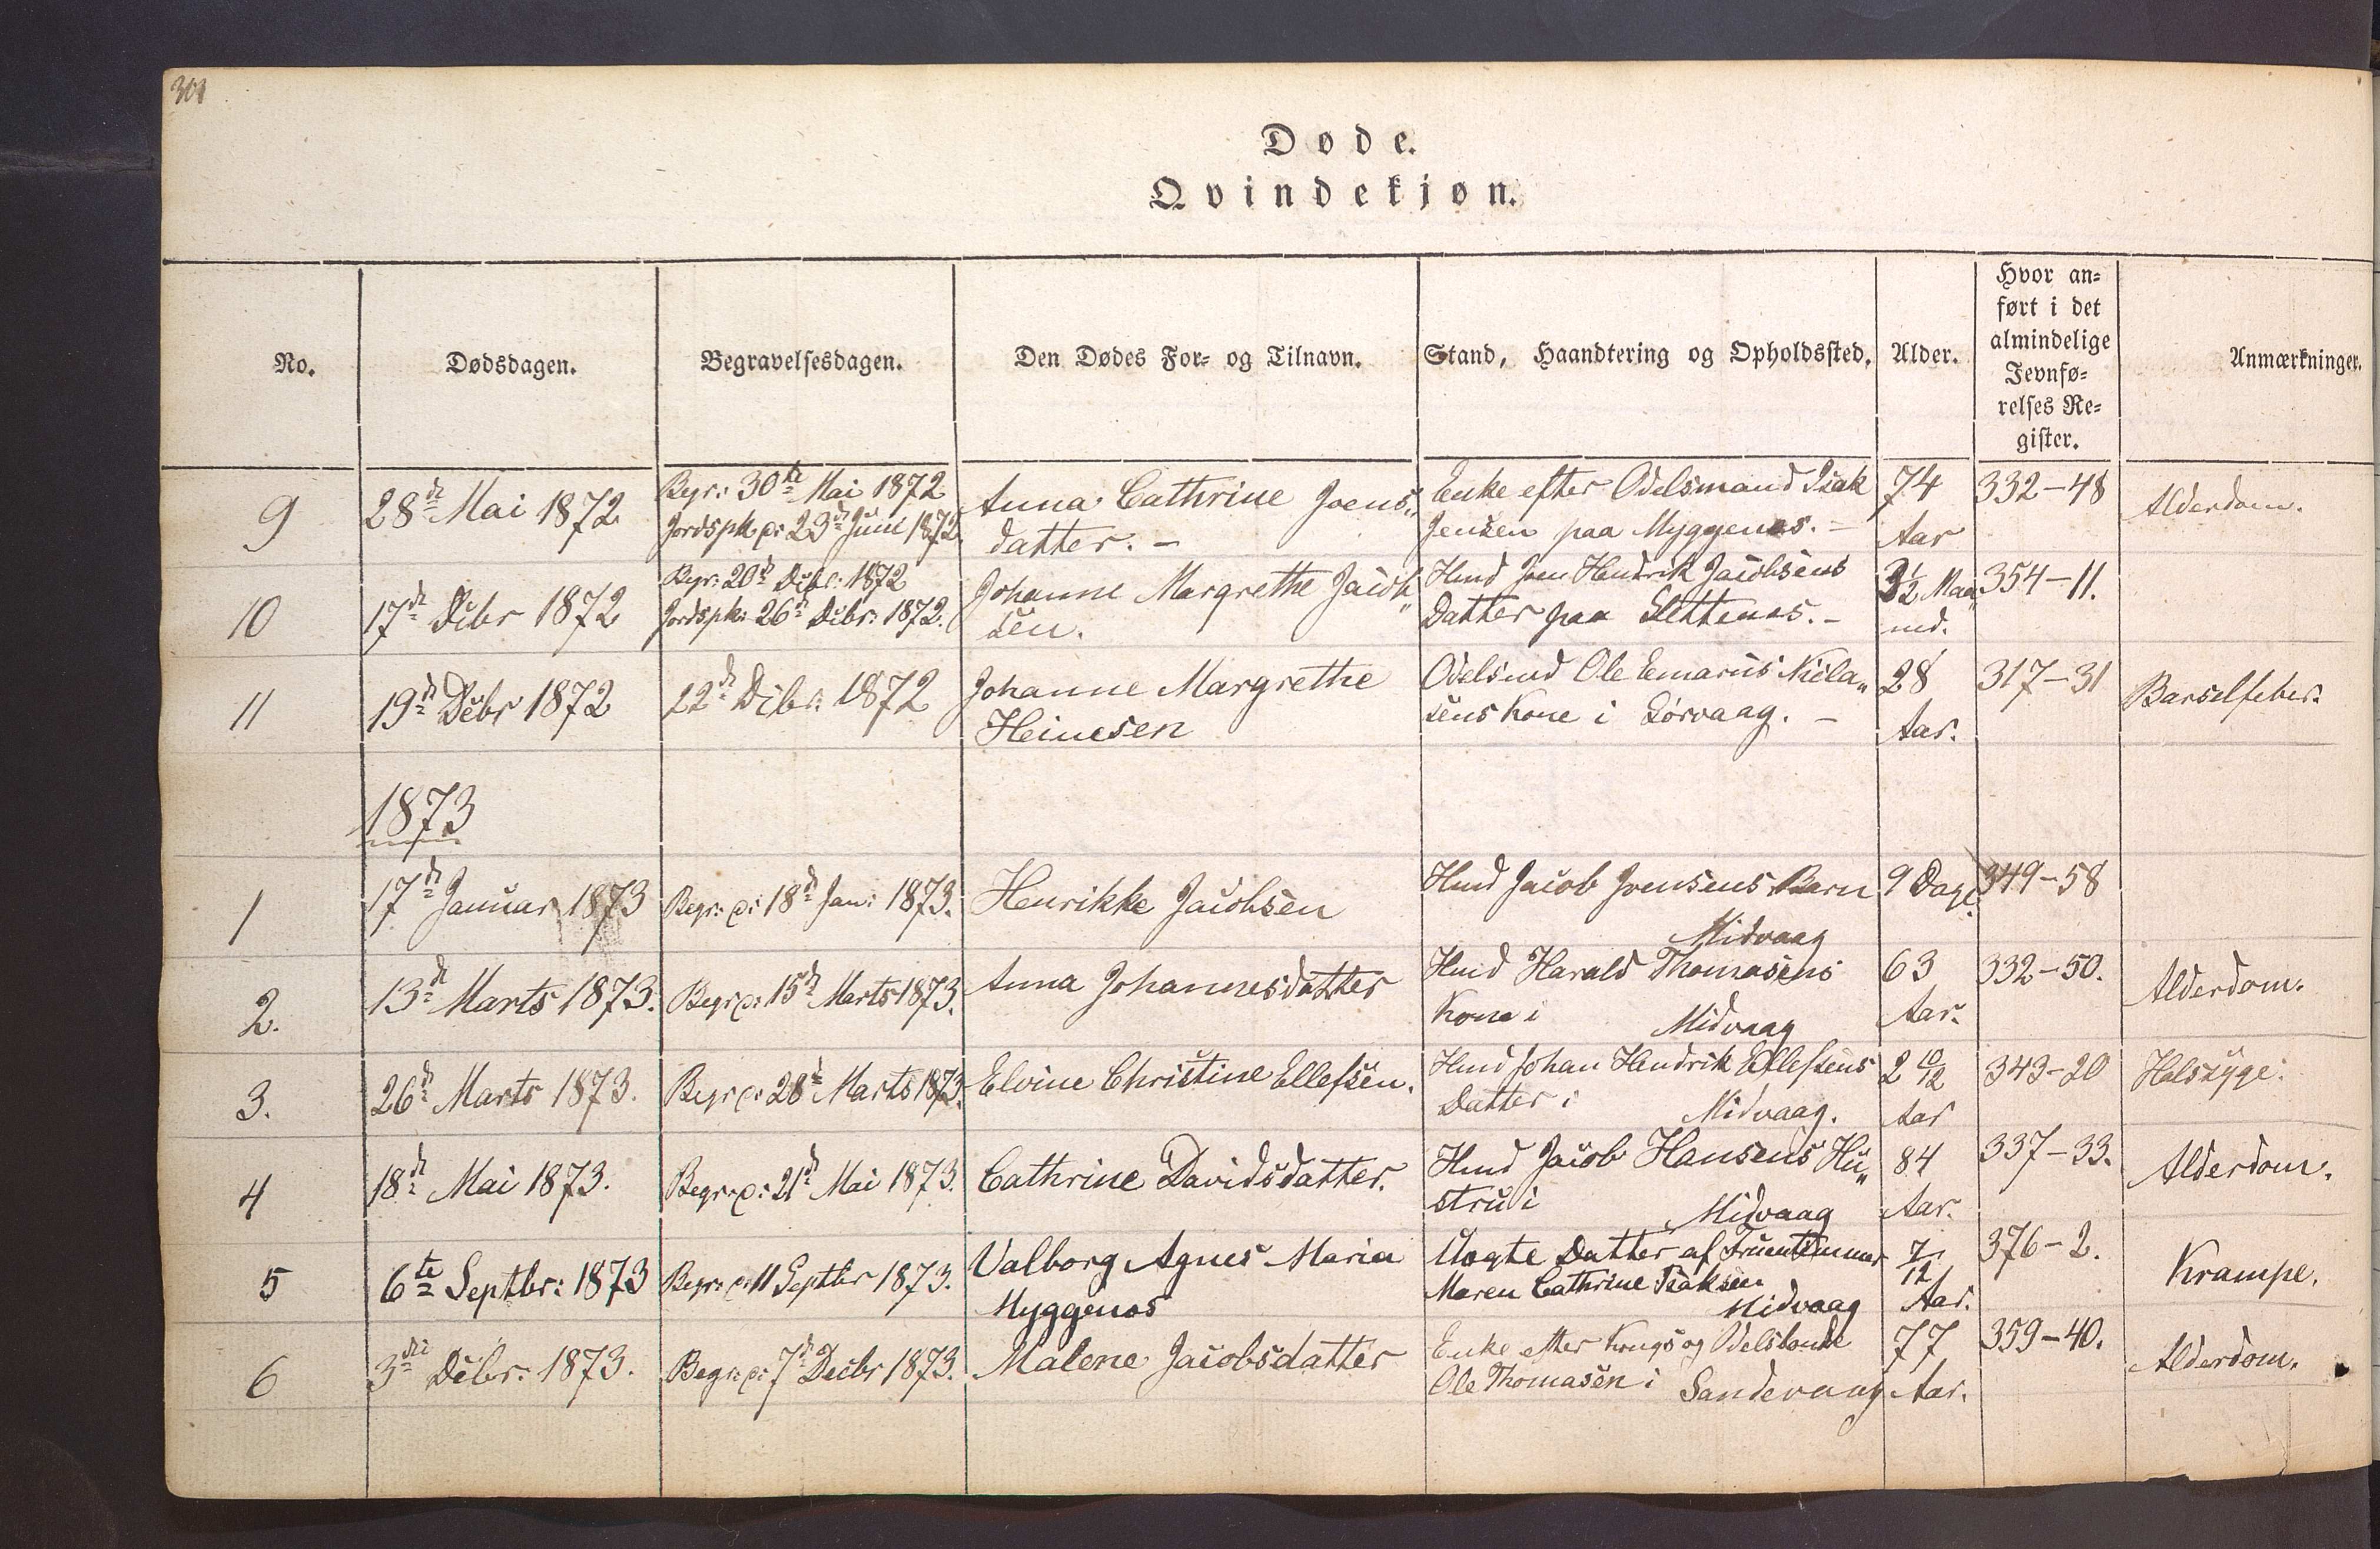 301
Døde.
Qvindekjøn.
No. Dødsdagen. Begravelsesdagen. Den Dødes For- og Tilnavn. Stand, Haandtering og Opholdssted. Alder. Hvor an-
ført i det
almindelige
Jevnfø-
relses Re-
gister. Anmærkninger.
9 28de Mai 1872 Begr: 30te Mai 1872 Anna Cathrine Joens„ Enke efter Odelsmand Isak 74 332-48 Alderdom.
Jordspk: 23de Juni 1872. datter. – Jensen paa Myggenæs. – Aar
10 17de Decbr 1872 Begr: 20de Decbr: 1872 Johanne Margrethe Jacob„ Hmd Joen Hendrik Jacobsens 3½ Maa„ 354-11.
Jordspk: 26de Decbr: 1872. sen. Datter paa Slettenæs. – ned.
11 19de Decbr 1872 22de Decbr: 1872 Johanne Margrethe Odelsmd Ole Emarius Niela„ 28 317-31 Barselfeber.
Heinesen sens Kone i Sørvaag. – Aar.
1873
1 17de Januar 1873 Begr: 18de Jan: 1873. Henrikke Jacobsen Hmd Jacob Joensens Barn 9 Dage. 349-58
Midvaag
2. 13de Marts 1873. Begr: 15de Marts 1873. Anna Johannesdatter Hmd Harald Thomasens 63 332-50. Alderdom.
Kone i Midvaag Aar.
3. 26de Marts 1873. Begr: 28de Marts 1873. Elvine Christine Ellefsen. Hmd Johan Hendrik Ellefsens 2 10/12 343-20 Halssyge.
Datter i Midvaag. Aar
4 18de Mai 1873. Begr: 21de Mai 1873. Cathrine Davidsdatter. Hmd Jacob Hansens Hu„ 84 337-33. Alderdom.
stru i Midvaag Aar.
5 6te Septbr: 1873 Begr: 11 Septbr 1873. Valborg Agnes Maria Uægte Datter af Fruentimmer 7/12 376-2. Krampe.
Myggenæs Maren Cathrine Isaksen Midvaag Aar.
6 3die Decbr: 1873. Begr: 7de Decbr 1873. Malene Jacobsdatter Enke efter Kongs og Odelsbonde 77 359-40. Alderdom.
Ole Thomasen i Sandevaag Aar.